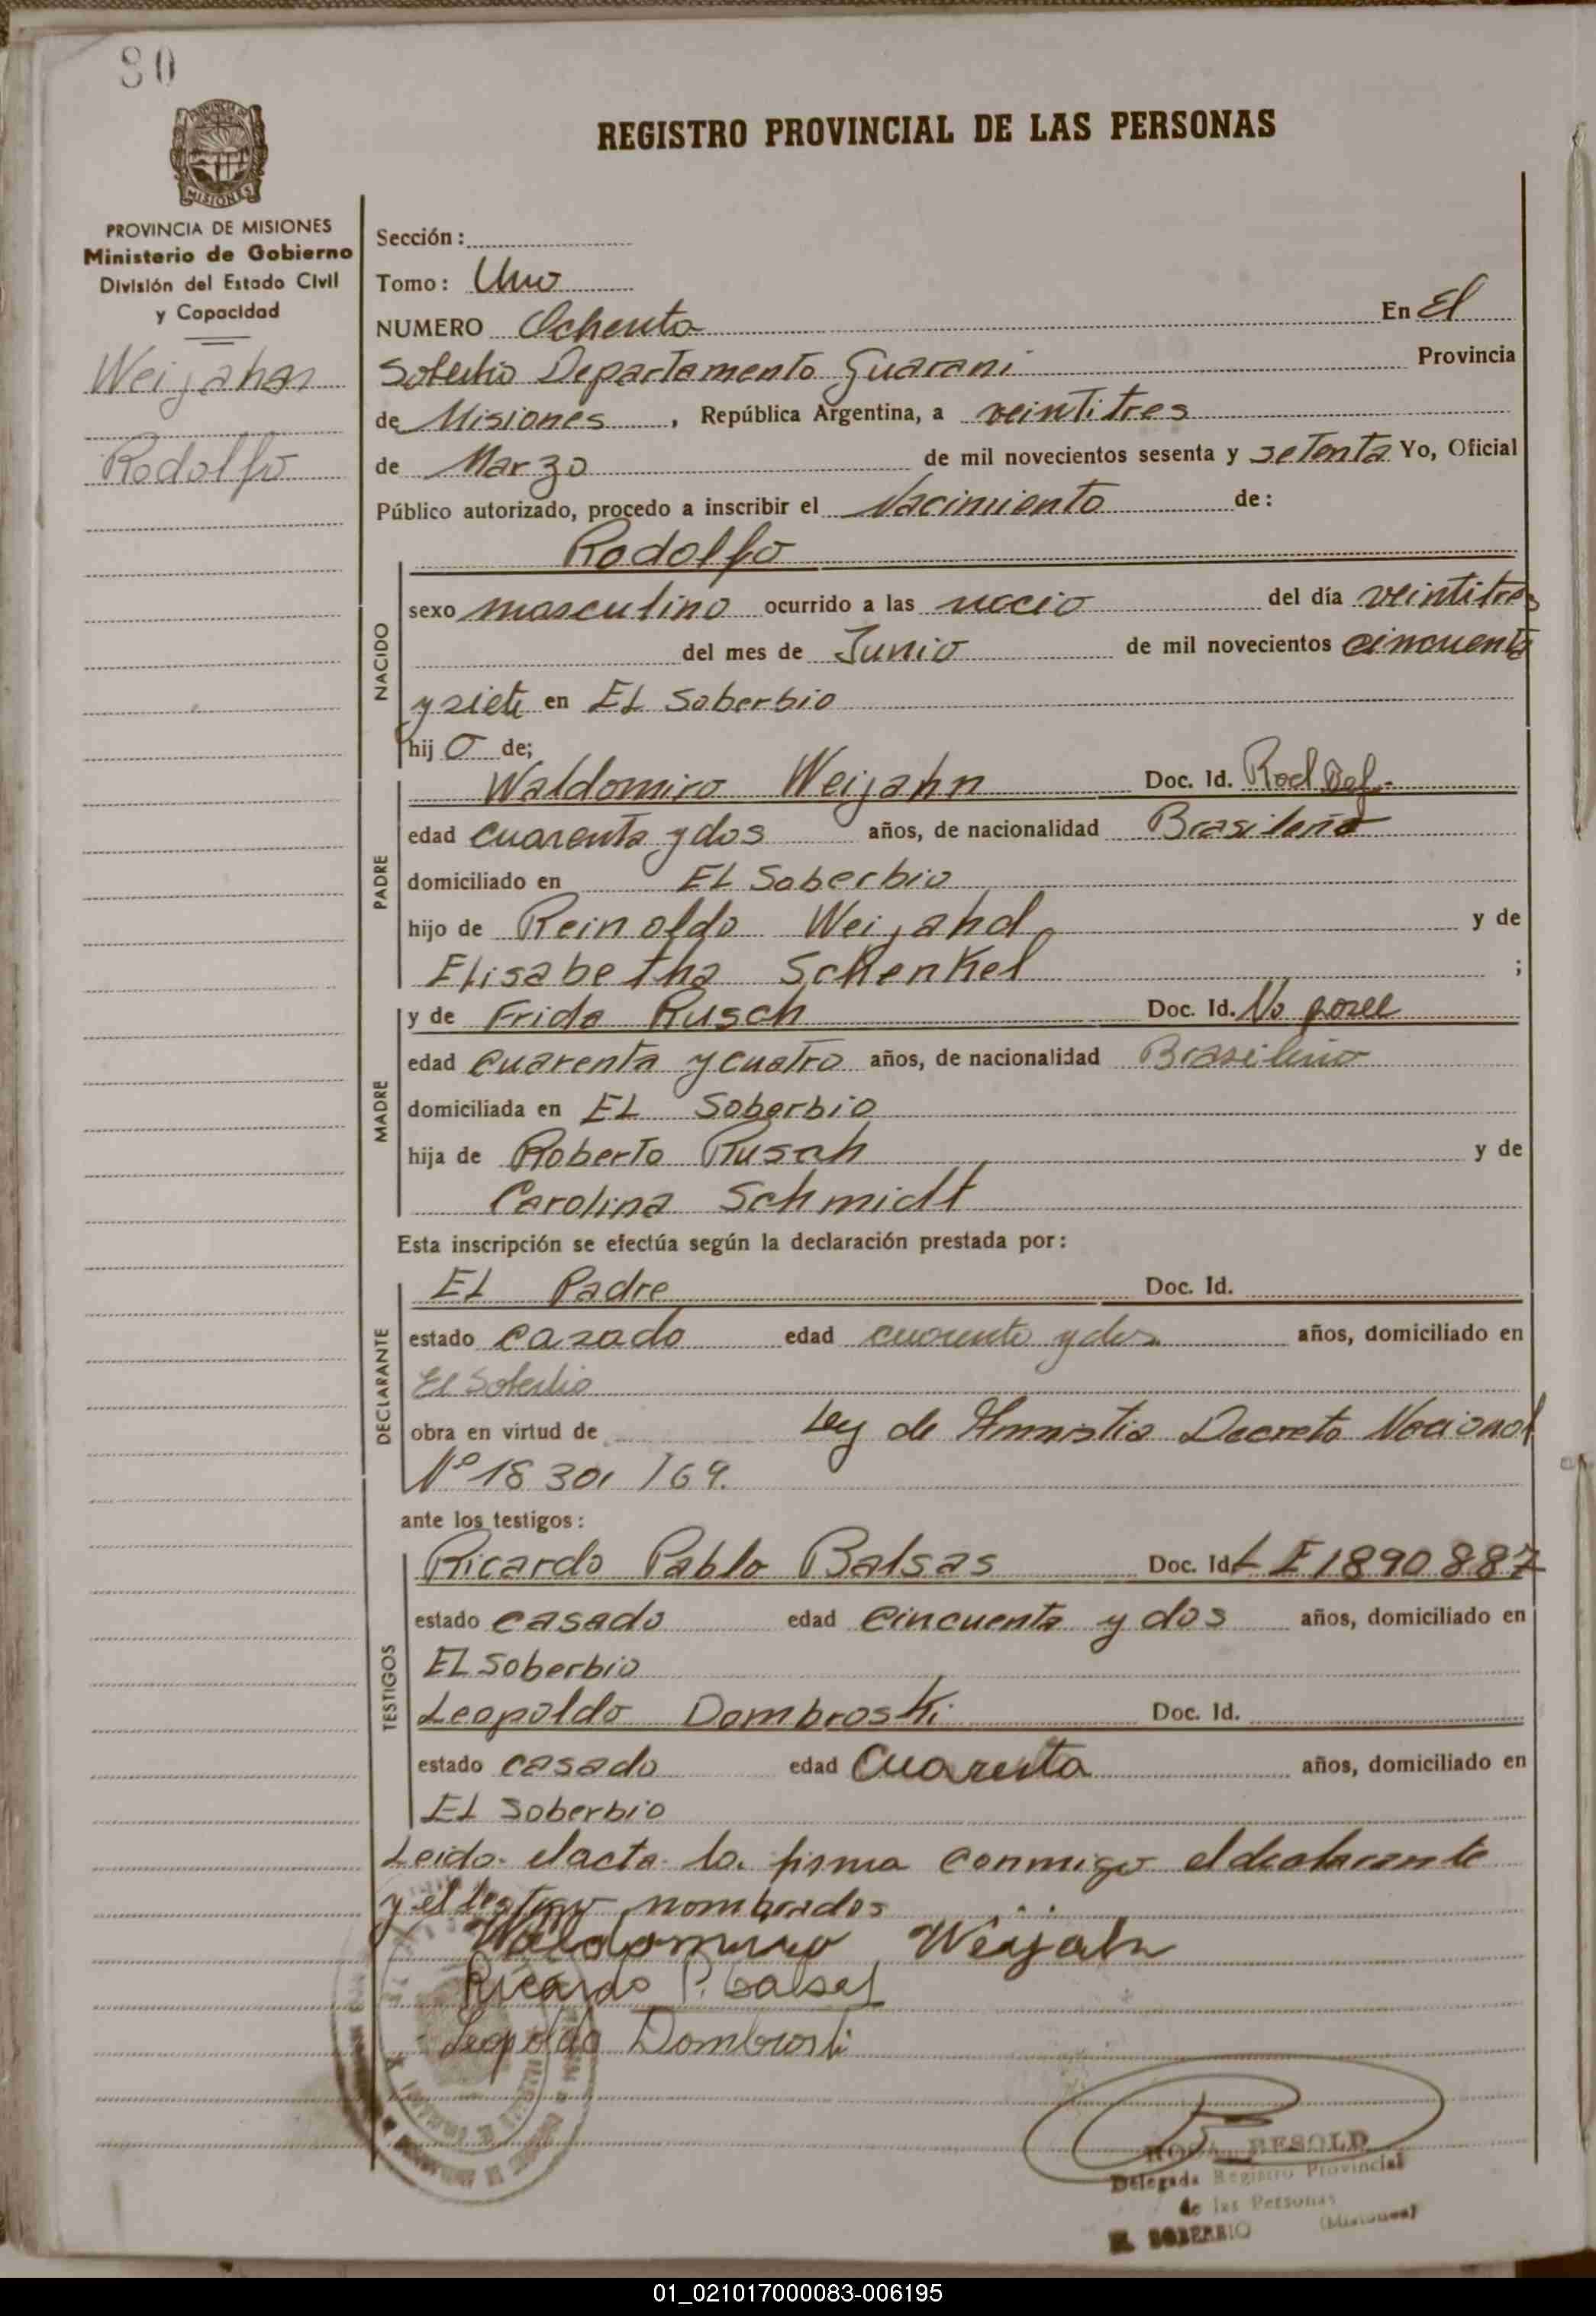 80
REGISTRO PROVINCIAL DE LAS PERSONAS
PROVINCIA DE MISIONES
Ministerio de Gobierno
División del Estado Civil
y Capacidad
Weijahn
Rodolfo
Sección:
Tomo: Uno
NUMERO Ochenta En El
Soberbio Departamento Guarani Provincia
de Misiones, República Argentina, a veintitres
de Marzo de mil novecientos sesenta y setenta Yo, Oficial
Público autorizado, procedo a inscribir el Nacimiento de:
Rodolfo
NACIDO
sexo masculino ocurrido a las del día veintitres
del mes de Junio de mil novecientos cincuenta
y siete en EL Soberbio
hijo de;
PADRE
Waldomiro Weijahn Doc. Id.
edad cuarenta y dos años, de nacionalidad Brasileña
domiciliado en EL Soberbio
hijo de Reinoldo Weijahd y de
Elisabetha Schenkel ;
MADRE
y de Frida Rusch Doc. Id. No posee
edad cuarenta y cuatro años, de nacionalidad
domiciliada en EL Soberbio
hija de Roberto Rusch y de
Carolina Schmidt
Esta inscripción se efectúa según la declaración prestada por:
DECLARANTE
EL Padre Doc. Id.
estado casado edad cuarenta y dos años, domiciliado en
El Soberbio
obra en virtud de Ley de Amnistia Decreto Nacional
Nº 18 301 /69.
ante los testigos:
TESTIGOS
Ricardo Pablo Balsas Doc. Id. L E 1890.887
estado casado edad cincuenta y dos años, domiciliado en
EL Soberbio
Leopoldo Dombroski Doc. Id.
estado casado edad Cuarenta años, domiciliado en
EL Soberbio
Leido el acta la firma conmigo el declarante
y el testigo nombrados
Waldomiro Weijahn
Ricardo P. Balsas
Leopoldo Dombroski
BESOLD
Delegada Registro Provincial
de las Personas
EL SOBERBIO (Misiones)
01_021017000083-006195